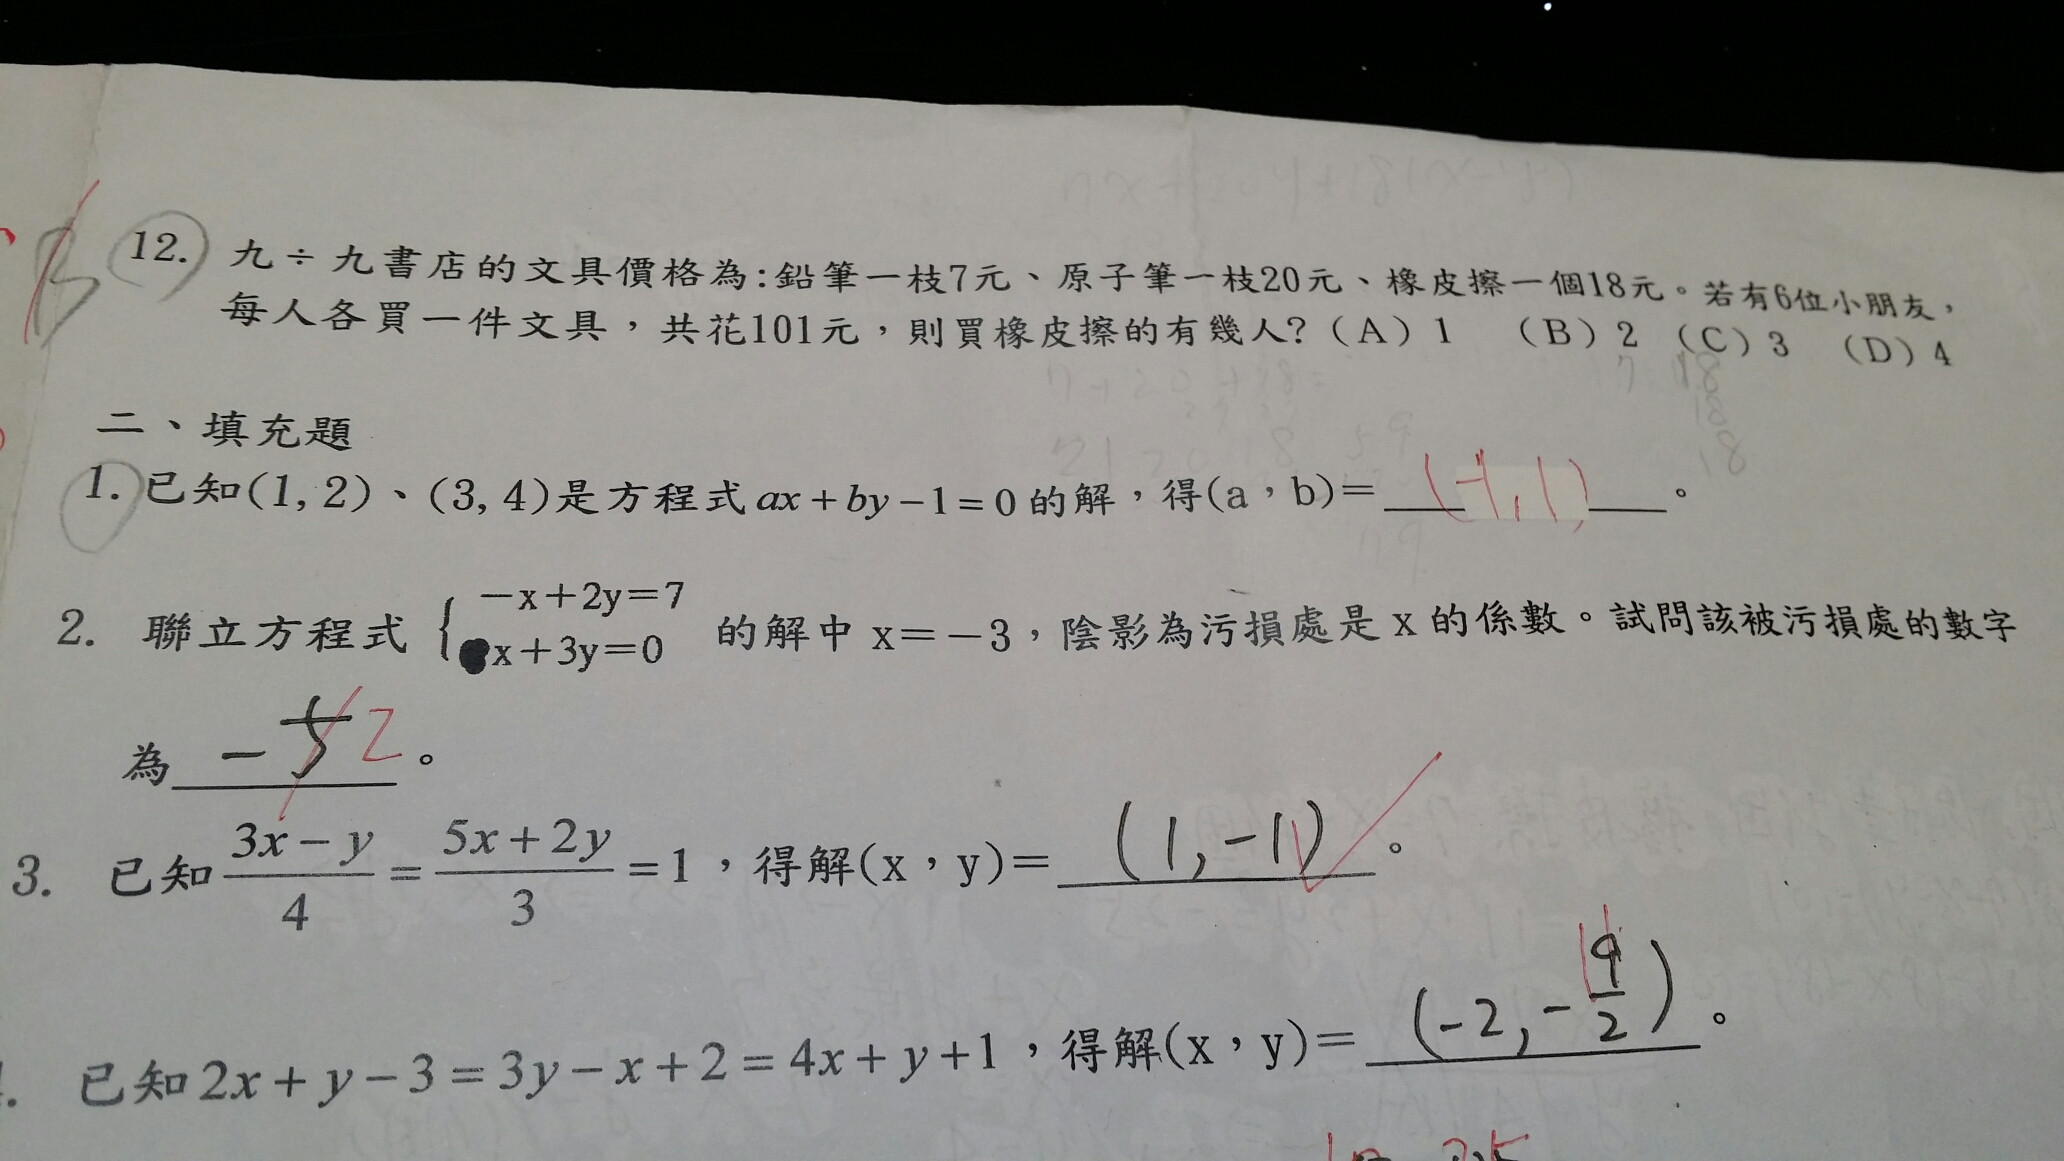 12. 九÷九書店的文具價格為:鉛筆一枝7元、原子筆一枝20元、橡皮擦一個18元。若有6位小朋友，
每人各買一件文具，共花101元，則買橡皮擦的有幾人? (A) 1 (B) 2 (C) 3 (D) 4
二、填充題
1. 已知(1, 2)、(3, 4)是方程式 ax+by-1=0 的解，得(a，b)= (-1, 1) 。
2. 聯立方程式 { -x+2y=7
x+3y=0 的解中 x=-3，陰影為污損處是 x 的係數。試問該被污損處的數字
為 -5 2 。
3. 已知 (3x-y)/4 = (5x+2y)/3 = 1，得解(x，y)= (1, -1) 。
已知 2x+y-3=3y-x+2=4x+y+1，得解(x，y)= (-2, -9/2) 。